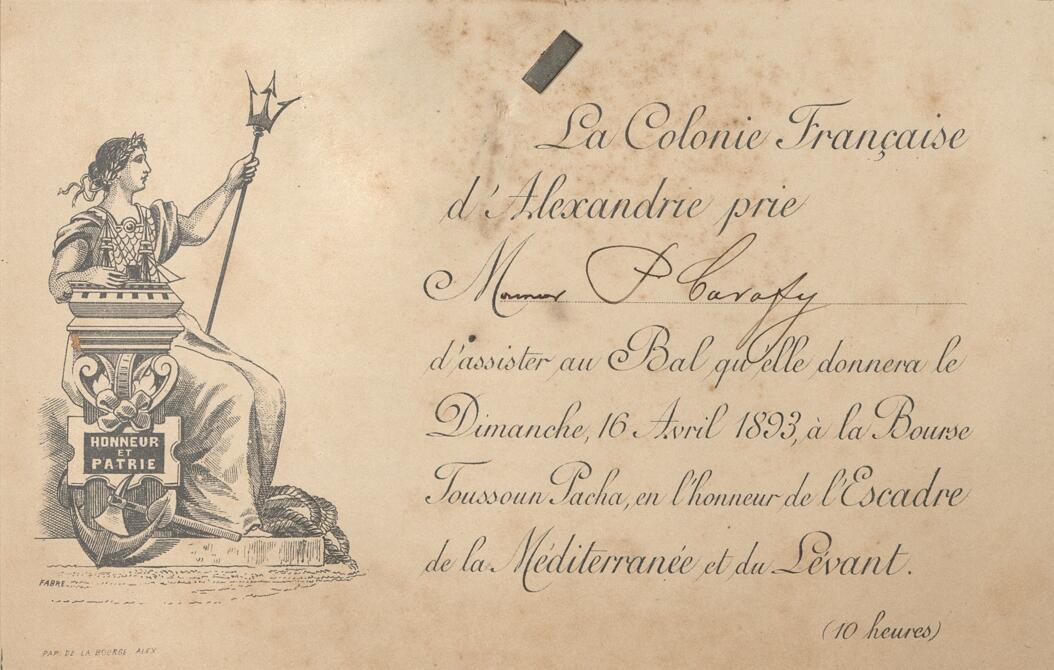 La Colonie Française
d'Alexandrie prie
Monsieur P Cavafy
d'assister au Bal qu'elle donnera le
Dimanche, 16 Avril 1893, à la Bourse
Toussoun Pacha, en l'honneur de l'Escadre
de la Méditerranée et du Lévant.
(10 heures)
HONNEUR
ET
PATRIE
FABRE
PAP. DE LA BOURSE, ALEX